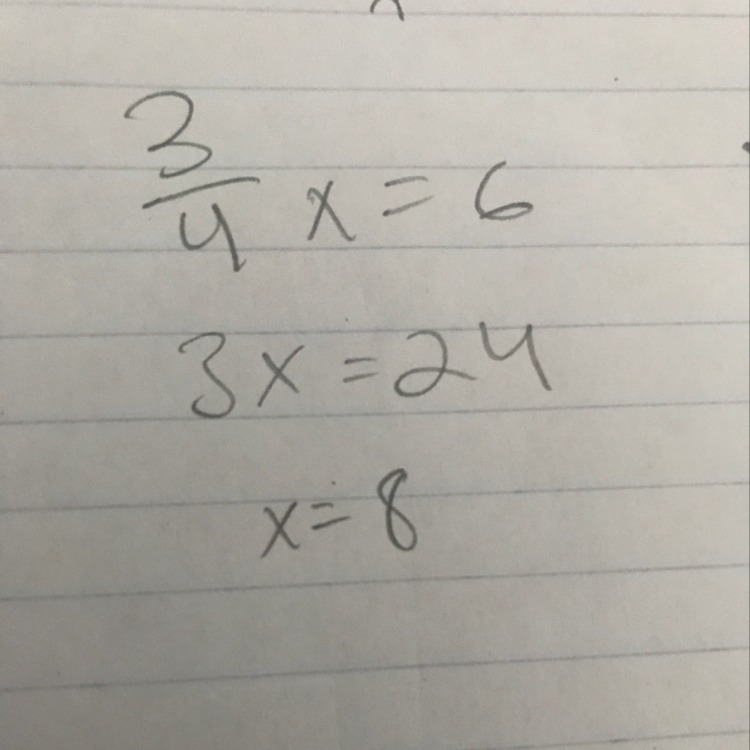 3/4 x = 6
3x = 24
x = 8